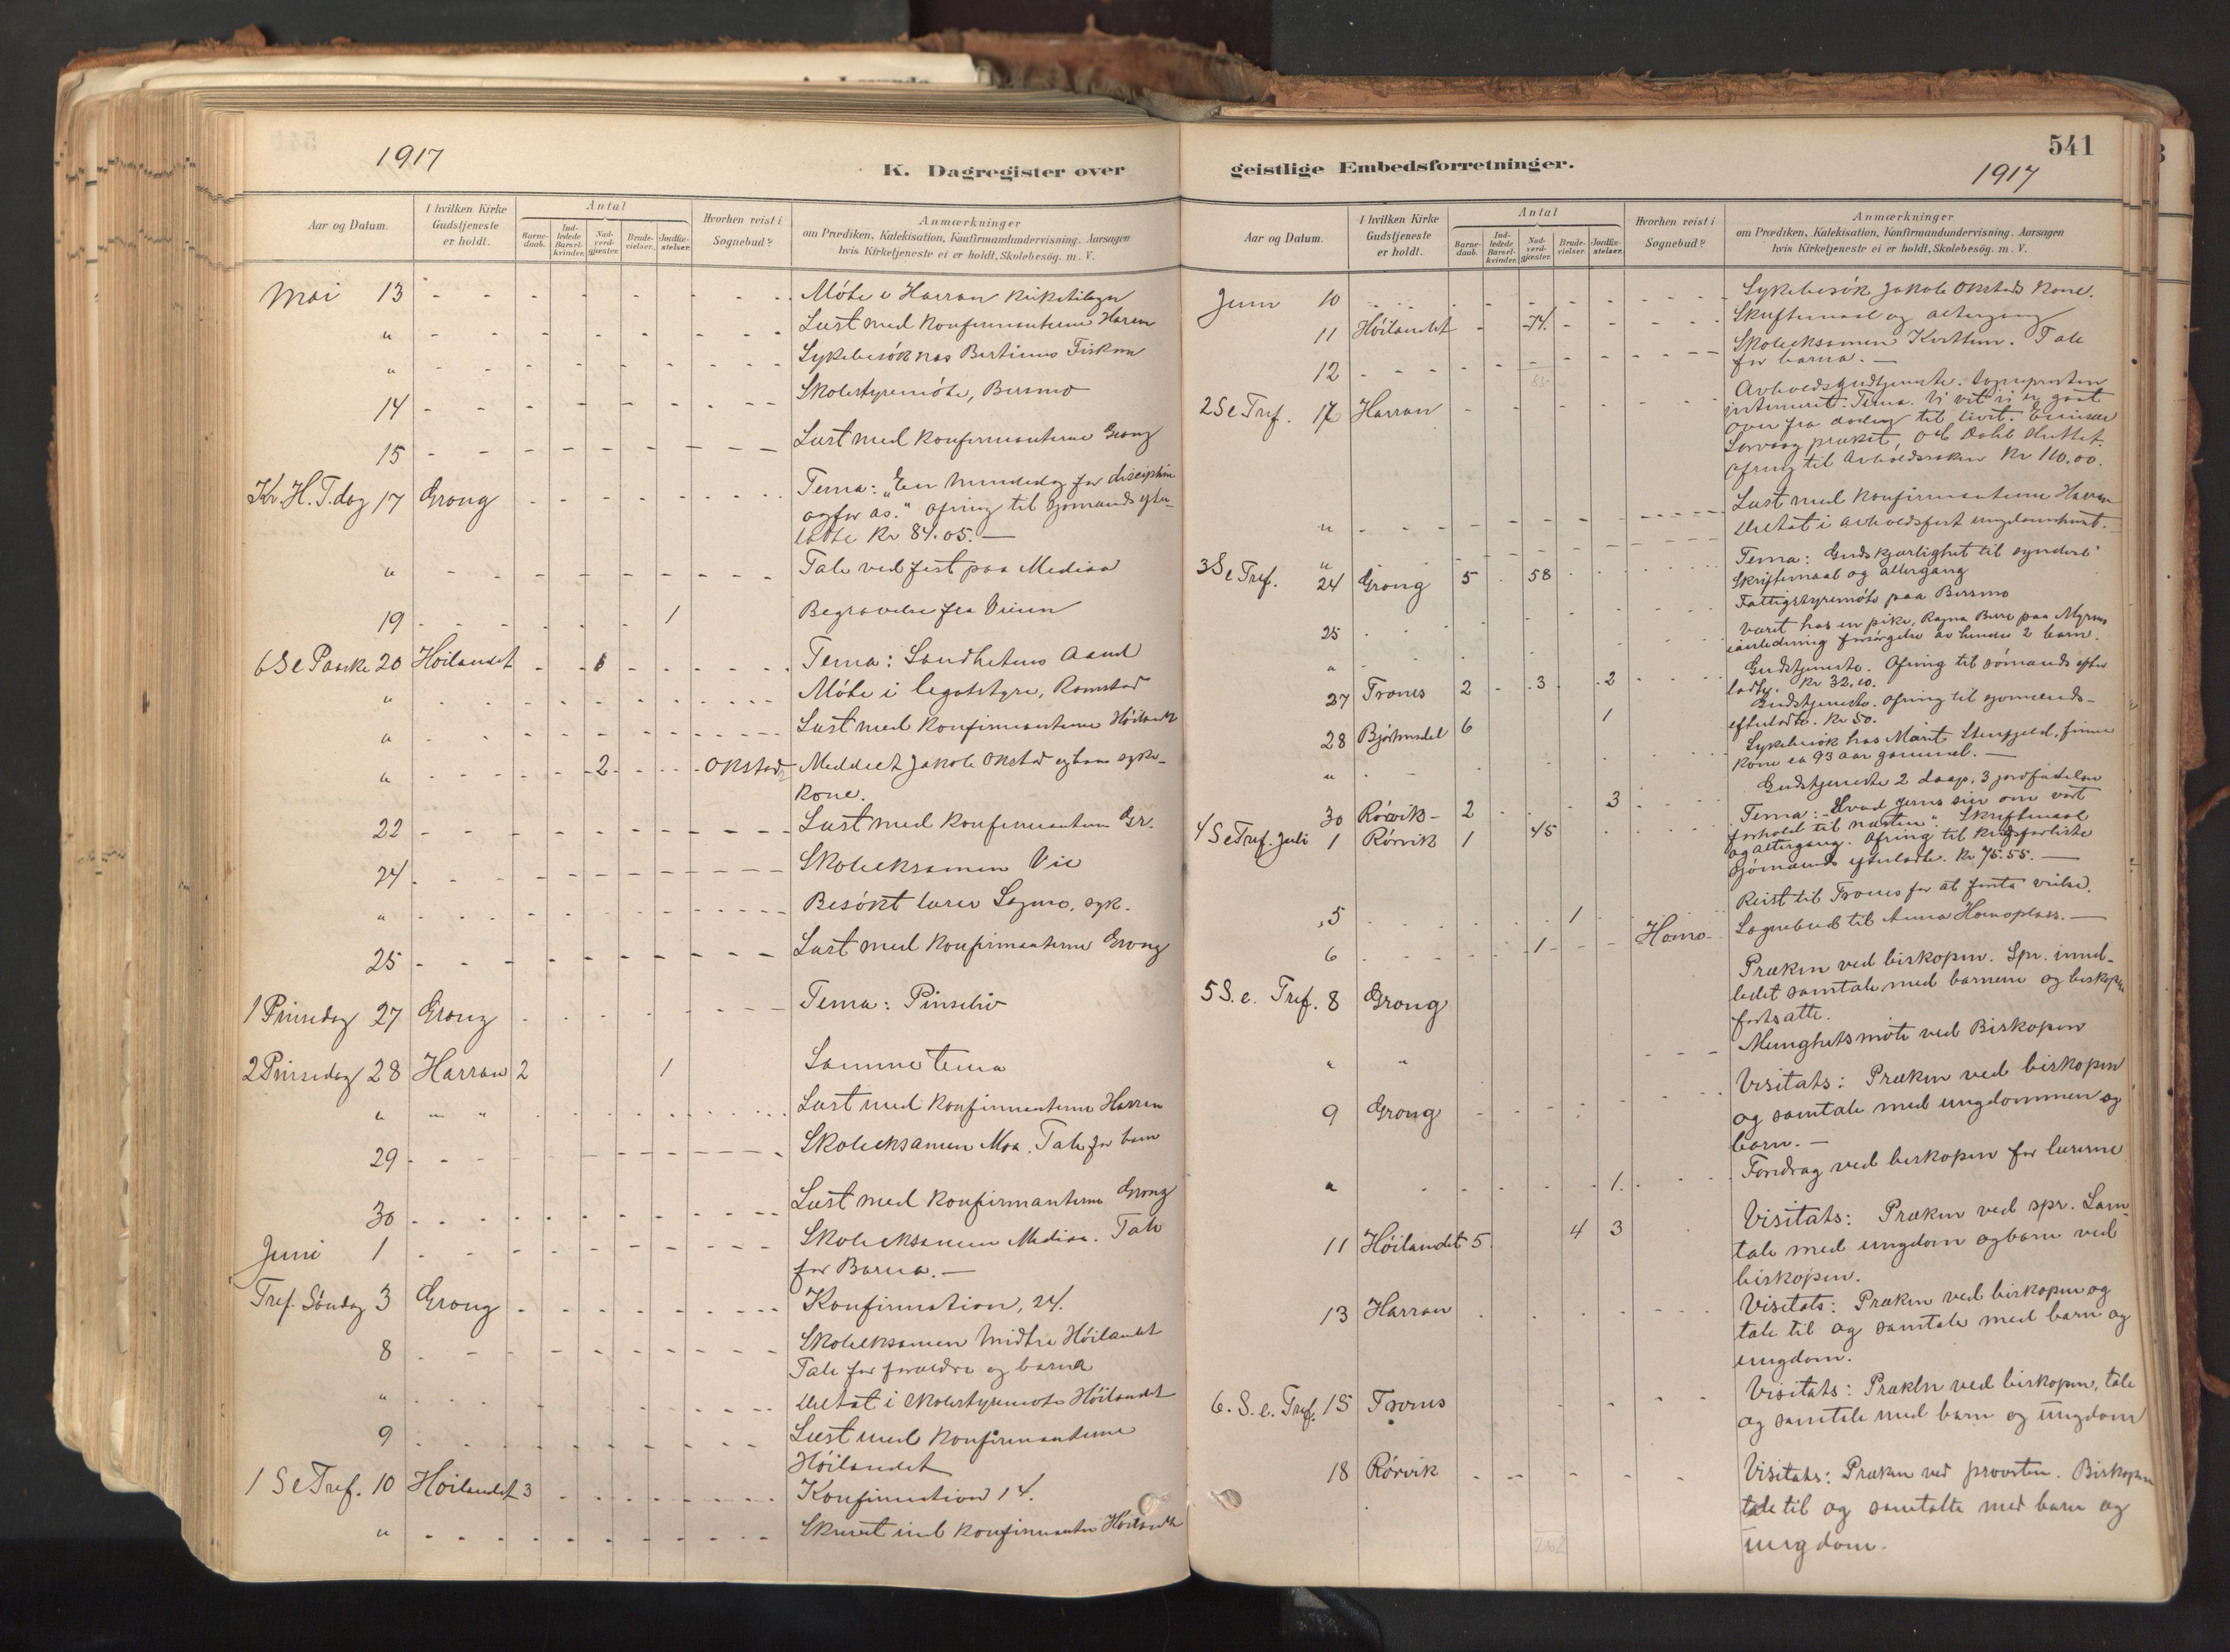 1917
K. Dagregister over
Aar og Datum.
I hvilken Kirke
Gudstjeneste
er holdt.
Antal
Barne-
daab.
Ind-
ledede
Barsel-
kvinder.
Nad-
verd-
gjæster.
Brude-
vielser.
Jordfæ-
stelser.
Hvorhen reist i
Sognebud?
Anmærkninger
om Prædiken, Katekisation, Konfirmandundervisning. Aarsagen
hvis Kirketjeneste ei er holdt, Skolebesög. m. V.
Mai 13 Möte i Harran kirketilsyn
" Læst med konfirmanterne Harran
" Sykebesök hos Bertinus Fiskum
14 Skolestyremöte, Bersmo
15 Læst med konfirmanterne Grong
Kr. H. T. dag 17 Grong Tema: "En mindedag for disciplene
og for os." Ofring til sjömænds efter-
latte Kr 84.05. —
" Tale ved fest paa Mediaa
19 1 Begravelse fra Veiem
6 S e Paaske 20 Höilandet Tema: Sandhetens Aand
" Möte i legatstyre, Romstad
" Læst med konfirmanterne Höilandet
" 2 Okstad Meddelt Jakob Okstad og hans syke
kone.
22 Læst med konfirmanterne Gr.
24 Skoleeksamen Vie
" Besökt lærer syk.
25 Læst med konfirmanterne Grong
1 Pinsedag 27 Grong Tema: Pinseliv
2 Pinsedag 28 Harran 2 1 Samme tema
" " " Læst med konfirmanterne Harran
29 Skoleeksamen Moa. Tale for barn
30 Læst med konfirmanterne Grong
Juni 1 Skoleeksamen Mediaa. Tale
for Barna. —
Tref. Söndag 3 Grong Konfirmation, 24.
8 Skoleeksamen midtre Höilandet
Tale for forældre og barna
" Deltat i skolestyremöte Höilandet
9 Læst med konfirmanterne
Höilandet
1 S e Tref. 10 Höilandet 3 Konfirmation 14.
" Skrevet ind konfirmanter Höilandet
541
1917
geistlige Embedsforretninger.
Aar og Datum.
I hvilken Kirke
Gudstjeneste
er holdt.
Antal
Barne-
daab.
Ind-
ledede
Barsel-
kvinder.
Nad-
verd-
gjæster.
Brude-
vielser.
Jordfæ-
stelser.
Hvorhen reist i
Sognebud?
Anmærkninger
om Prædiken, Katekisation, Konfirmandundervisning. Aarsagen
hvis Kirketjeneste ei er holdt, Skolebesög. m. V.
Juni 10 Sykebesök Jakob Okstads kone.
11 Höilandet 74 Skriftemaal og altergang
12 Skoleeksamen Tale
for barna. —
2 S e Tref. 17 Harran Avholdsgudstjeneste. Sogneprsten
intimerte. Tema. Vi vet vi er gaat
over fra döden til livet.
præket, og
Ofring til Avholdssaken Kr 110.00.
" Læst med konfirmanterne Harran
" Deltat i avholdsfest ungdomshuset.
3 S e Tref. 24 Grong 5 58 Tema: Guds kjærlighet til syndere
Skriftemaal og altergang
25 Fattigstyremöte paa Bersmo
" Været hos en pike, Ragna paa
i anledning forsörgelse av hendes 2 barn.
27 Trones 2 3 2 Gudstjeneste. Ofring til sömænds efter
ladte. Kr 32.10.
28 Björhusdal 6 1 Gudstjeneste. Ofring til sjömænds-
efterladte. Kr 50.
" Sykebesök hos Marit Stenfjeld,
kone ca 93 aar gammel. —
30 Rörvik 2 3 Gudstjeneste 2 daap, 3 jordfæstelser
4 S e Tref. Juli 1 Rörvik 1 45 Tema: "Hvad Jesus sier om vort
forhold til næsten." Skriftemaal
og altergang. Ofring til krigsforliste
sjömænds efterladte. Kr. 75.55. —
5 1 Reist til Trones for at foreta vielse.
6 1 Homo Sognebud til Anna Homoplass. —
5 S. e. Tref. 8 Grong Præken ved biskopen. Spr. innd-
ledet samtale med barnene og biskopen
fortsatte.
" " Menighetsmöte ved Biskopen
9 Grong Visitats: Præken ved biskopen
og samtale med ungdommen og
barn. —
" 1. Foredrag ved biskopen for lærerne
11 Höilandet 5 4 3 Visitats: Præken ved spr. Sam-
tale med ungdom og barn ved
biskopen.
13 Harran Visitats: Præken ved biskopen og
tale til og samtale med barn og
ungdom.
6. S. e. Tref. 15 Trones Visitats: Præken ved biskopen, tale
og samtale med barn og ungdom
18 Rörvik Visitats: Præken ved provsten. Biskopen
tale til og samtalte med barn og
ungdom.